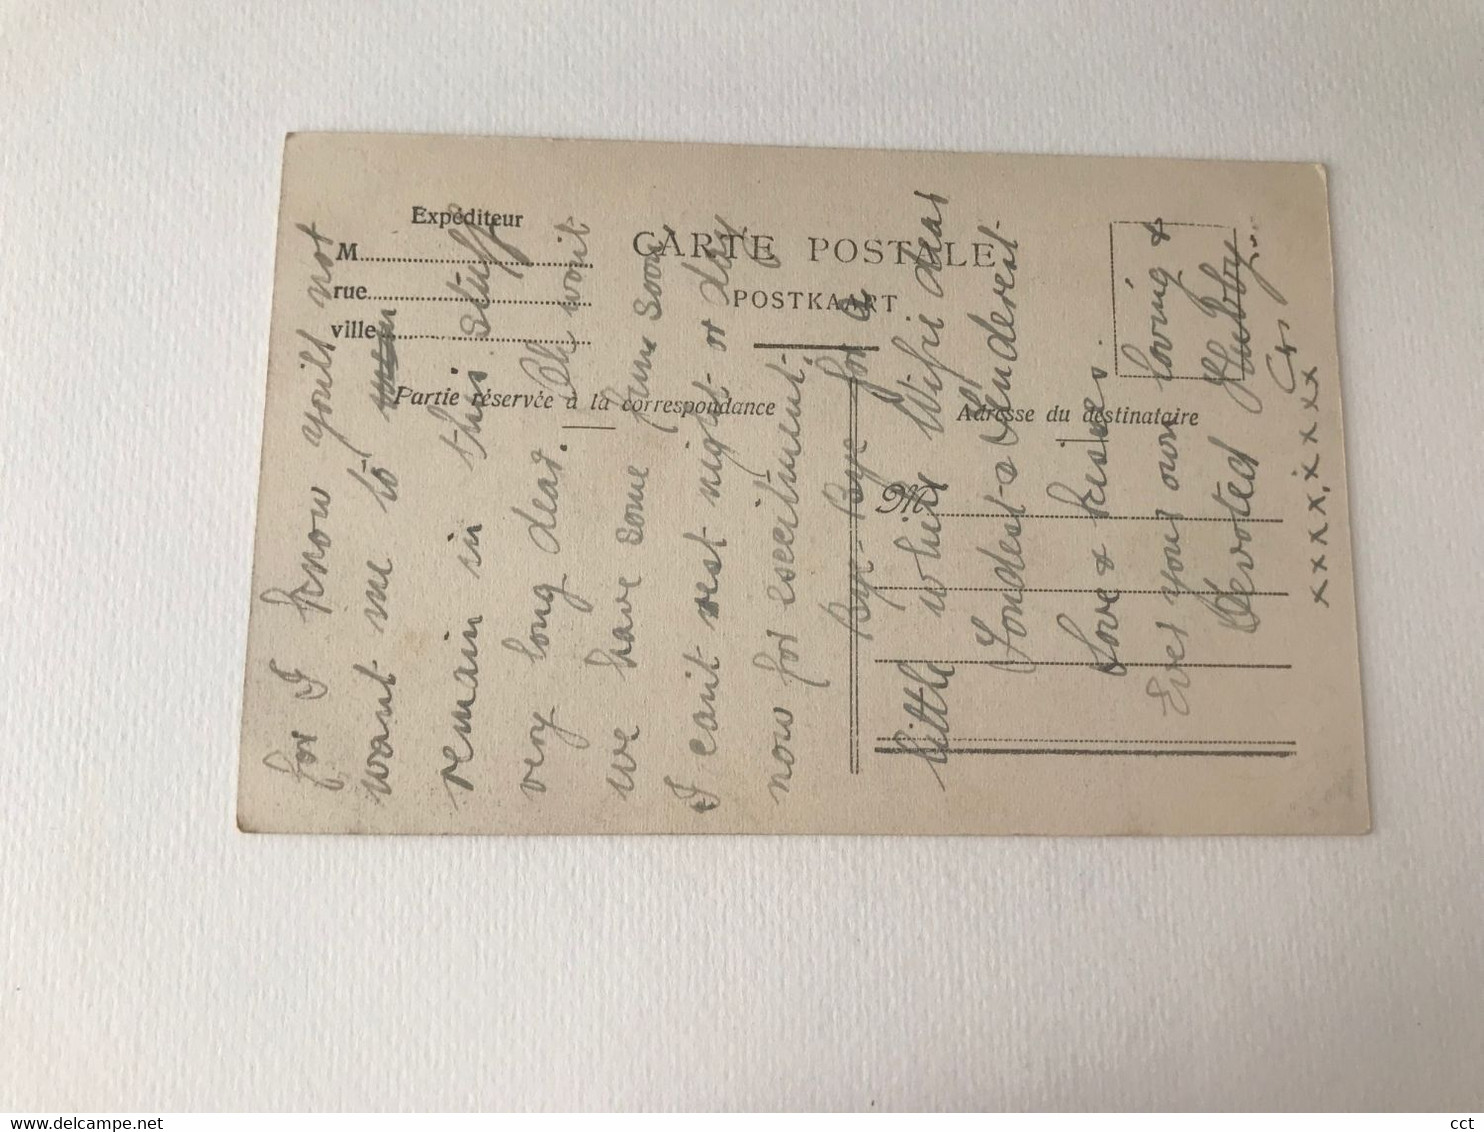 Expéditeur
M
rue
ville
CARTE POSTALE
POSTKAART
Partie réservée à la correspondance
Adresse du destinataire
M
for I know youill not
want me to
remain in this stuff
very long dear. Oh wont
we have some fun soon
I cant rest night or day
now for excitement.
Bye-Bye for a
little while Wifie dear
Fondest & Tenderest
Love & kisses.
Ever your own loving &
Devoted Hubby.
xxxx.xxxx
www.delcampe.net
cct